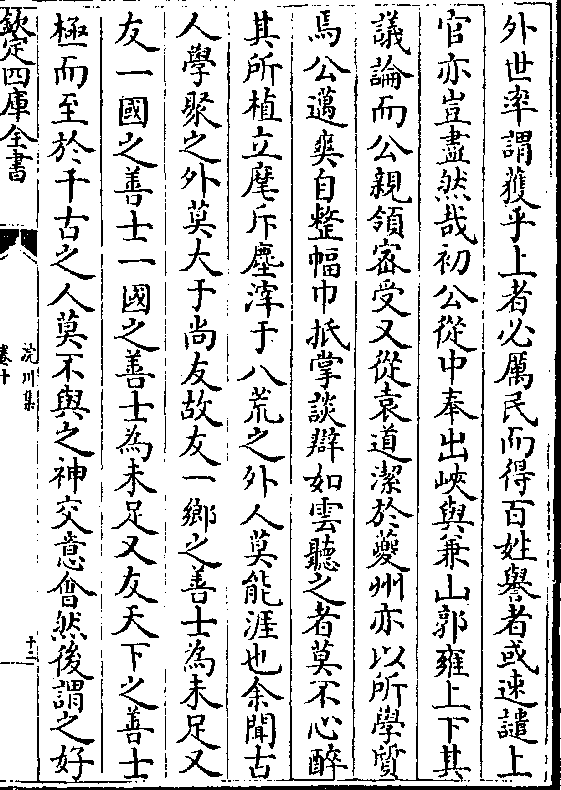 外世率謂獲乎上者必厲民而得百姓譽者或速譴上
官亦豈盡然哉初公從中奉出峽與兼山郭雍上下其
議論而公親領密受又從袁道潔於夔州亦以所學質
焉公邁爽自整幅巾抵掌談辯如雲聽之者莫不心醉
其所植立麾斥塵滓于八荒之外人莫能涯也余聞古
人學聚之外莫大于尚友故友一鄉之善士為未足又
友一國之善士一國之善士為未足又友天下之善士
極而至於千古之人莫不與之神交意會然後謂之好
欽定四庫全書
浣川集
卷十
十二